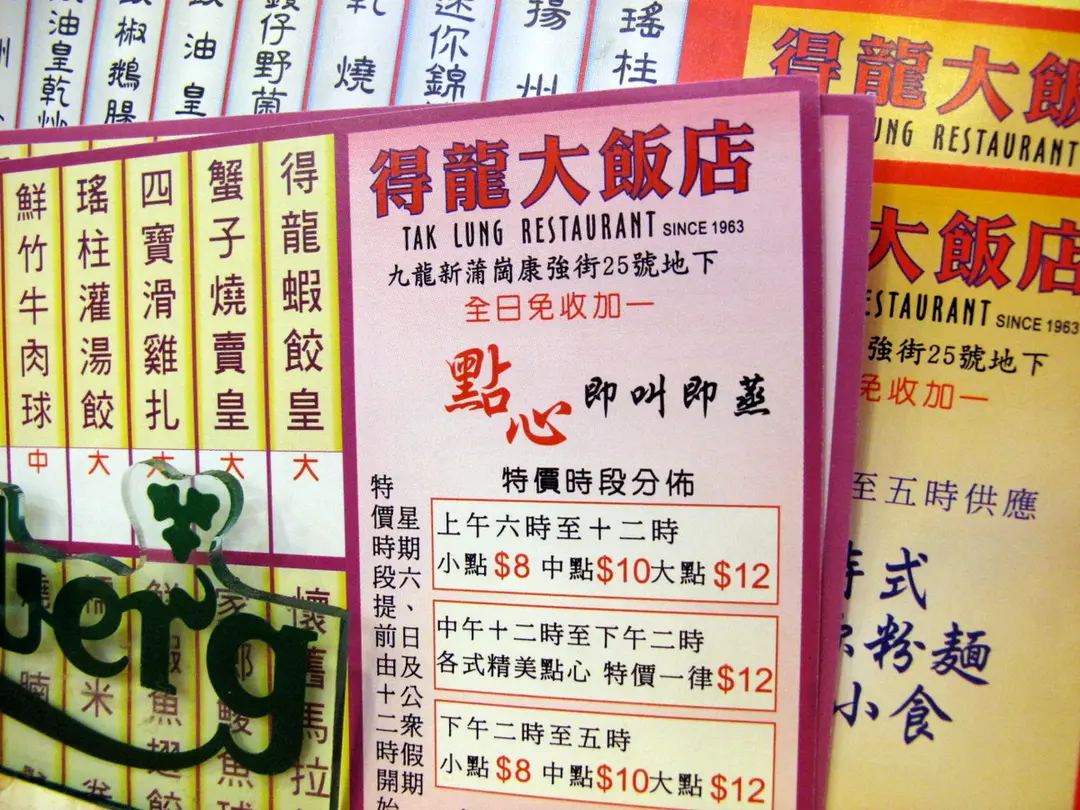 油皇乾炒
椒鵝腸
豉油皇
鼓仔野菌
乾燒
迷你錦
揚州
瑤柱
得龍大飯
UNG RESTAURANT
得龍大飯店
TAK LUNG RESTAURANT SINCE 1963
九龍新蒲崗康強街25號地下
全日免收加一
點心 即叫即蒸
特價時段分佈
上午六時至十二時
小點$8 中點$10大點$12
中午十二時至下午二時
各式精美點心 特價一律$12
下午二時至五時
小點$8 中點$10大點$12
特價時段提前由十二時開始
星期六、日及公眾假期
得龍蝦餃皇
大
蟹子燒賣皇
大
四寶滑雞扎
大
瑤柱灌湯餃
大
鮮竹牛肉球
中
懷舊馬拉
鮫魚球
鮮蝦魚翅餃
米
腩
berg
大飯店
ESTAURANT SINCE 1963
強街25號地下
免收加一
至五時供應
式
粉麵
小食